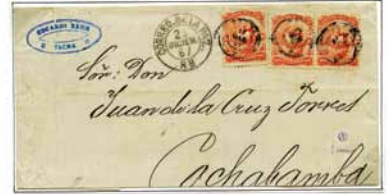 EDUARDO
TACNA
CORREOS DE LA PAZ
23
67
Sõr: Don
Juan de la Cruz Torres
Cochabamba